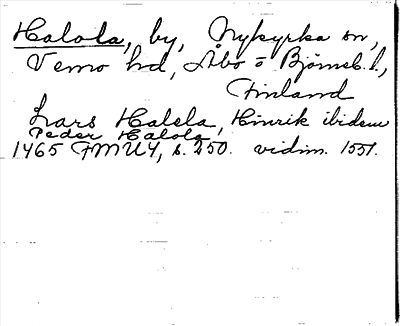 Halola, by, Nykyrka sn,
Vemo hd, Åbo o Björneb. l.,
Finland
Lars Halola, Hinrik ibidem
Peder Halola
1465 FMU4, s. 250. vidim. 1551.